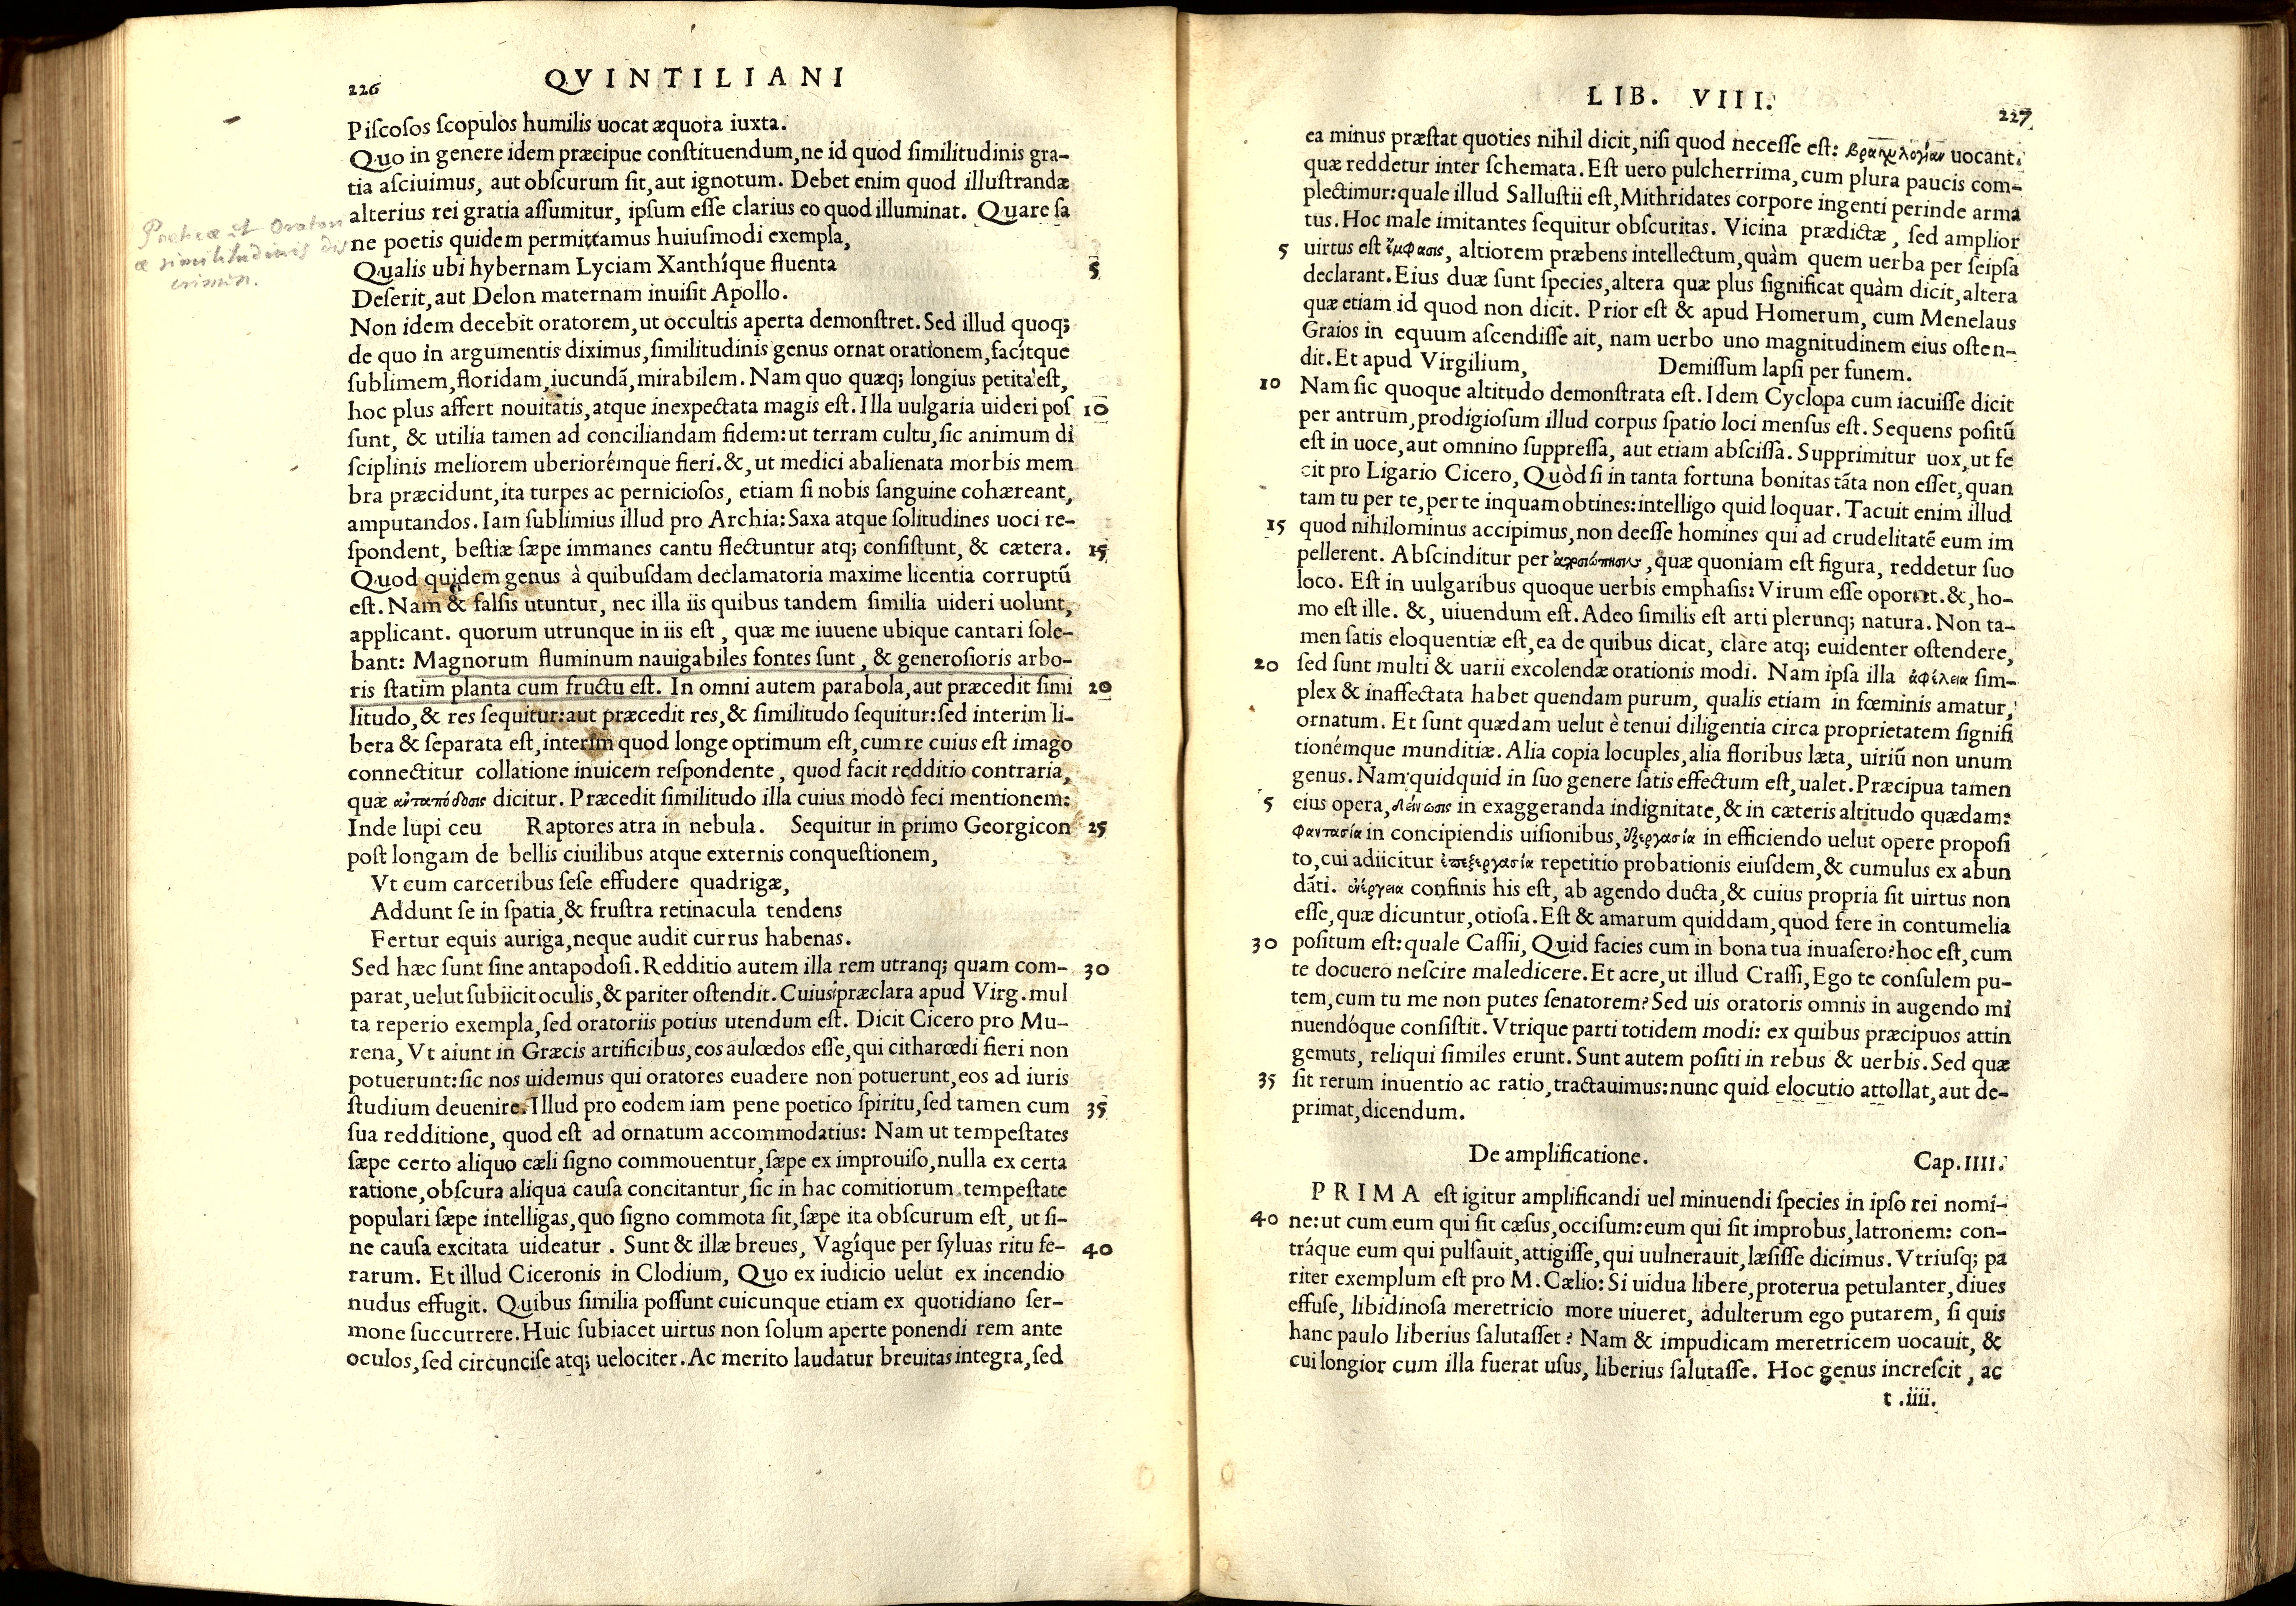 226
QVINTILIANI
Piſcoſos ſcopulos humilis uocat æquora iuxta.
Quo in genere idem præcipue conſtituendum, ne id quod ſimilitudinis gra-
tia aſciuimus, aut obſcurum ſit, aut ignotum. Debet enim quod illuſtrandæ
alterius rei gratia aſſumitur, ipſum eſſe clarius eo quod illuminat. Quare ſa
ne poetis quidem permittamus huiuſmodi exempla,
Qualis ubi hybernam Lyciam Xanthíque fluenta
5
Deſerit, aut Delon maternam inuiſit Apollo.
Non idem decebit oratorem, ut occultis aperta demonſtret. Sed illud quoq;
de quo in argumentis diximus, ſimilitudinis genus ornat orationem, facítque
ſublimem, floridam, iucundã, mirabilem. Nam quo quæq; longius petita eſt,
hoc plus affert nouitatis, atque inexpectata magis eſt. Illa uulgaria uideri poſ 10
ſunt, & utilia tamen ad conciliandam fidem: ut terram cultu, ſic animum di
ſciplinis meliorem uberiorémque fieri. &, ut medici abalienata morbis mem
bra præcidunt, ita turpes ac pernicioſos, etiam ſi nobis ſanguine cohæreant,
amputandos. Iam ſublimius illud pro Archia: Saxa atque ſolitudines uoci re-
ſpondent, beſtiæ ſæpe immanes cantu flectuntur atq; conſiſtunt, & cætera. 15
Quod quidem genus à quibuſdam declamatoria maxime licentia corruptũ
eſt. Nam & falſis utuntur, nec illa iis quibus tandem ſimilia uideri uolunt,
applicant. quorum utrunque in iis eſt, quæ me iuuene ubique cantari ſole-
bant: Magnorum fluminum nauigabiles fontes ſunt, & generoſioris arbo-
ris ſtatim planta cum fructu eſt. In omni autem parabola, aut præcedit ſimi 20
litudo, & res ſequitur: aut præcedit res, & ſimilitudo ſequitur: ſed interim li-
bera & ſeparata eſt, interim quod longe optimum eſt, cum re cuius eſt imago
connectitur collatione inuicem reſpondente, quod facit redditio contraria,
quæ ἀνταπόδοσις dicitur. Præcedit ſimilitudo illa cuius modò feci mentionem:
Inde lupi ceu Raptores atra in nebula. Sequitur in primo Georgicon 25
poſt longam de bellis ciuilibus atque externis conqueſtionem,
Vt cum carceribus ſeſe effudere quadrigæ,
Addunt ſe in ſpatia, & fruſtra retinacula tendens
Fertur equis auriga, neque audit currus habenas.
Sed hæc ſunt ſine antapodoſi. Redditio autem illa rem utranq; quam com- 30
parat, uelut ſubiicit oculis, & pariter oſtendit. Cuius præclara apud Virg. mul
ta reperio exempla, ſed oratoriis potius utendum eſt. Dicit Cicero pro Mu-
rena, Vt aiunt in Græcis artificibus, eos aulœdos eſſe, qui citharœdi fieri non
potuerunt: ſic nos uidemus qui oratores euadere non potuerunt, eos ad iuris
ſtudium deuenire. Illud pro eodem iam pene poetico ſpiritu, ſed tamen cum 35
ſua redditione, quod eſt ad ornatum accommodatius: Nam ut tempeſtates
ſæpe certo aliquo cæli ſigno commouentur, ſæpe ex improuiſo, nulla ex certa
ratione, obſcura aliqua cauſa concitantur, ſic in hac comitiorum tempeſtate
populari ſæpe intelligas, quo ſigno commota ſit, ſæpe ita obſcurum eſt, ut ſi-
ne cauſa excitata uideatur. Sunt & illæ breues, Vagíque per ſyluas ritu fe- 40
rarum. Et illud Ciceronis in Clodium, Quo ex iudicio uelut ex incendio
nudus effugit. Quibus ſimilia poſſunt cuicunque etiam ex quotidiano ſer-
mone ſuccurrere. Huic ſubiacet uirtus non ſolum aperte ponendi rem ante
oculos, ſed circunciſe atq; uelociter. Ac merito laudatur breuitas integra, ſed
Poeticæ et Oratori
æ similitudinis dis
crimen.
LIB. VIII.
227
ea minus præſtat quoties nihil dicit, niſi quod neceſſe eſt: βραχυλογίαν uocant.
quæ reddetur inter ſchemata. Eſt uero pulcherrima, cum plura paucis com-
plectimur: quale illud Salluſtii eſt, Mithridates corpore ingenti perinde arma
tus. Hoc male imitantes ſequitur obſcuritas. Vicina prædictæ, ſed amplior
5 uirtus eſt ἔμφασις, altiorem præbens intellectum, quàm quem uerba per ſeipſa
declarant. Eius duæ ſunt ſpecies, altera quæ plus ſignificat quàm dicit, altera
quæ etiam id quod non dicit. Prior eſt & apud Homerum, cum Menelaus
Graios in equum aſcendiſſe ait, nam uerbo uno magnitudinem eius oſten-
dit. Et apud Virgilium, Demiſſum lapſi per funem.
10 Nam ſic quoque altitudo demonſtrata eſt. Idem Cyclopa cum iacuiſſe dicit
per antrum, prodigioſum illud corpus ſpatio loci menſus eſt. Sequens poſitũ
eſt in uoce, aut omnino ſuppreſſa, aut etiam abſciſſa. Supprimitur uox, ut fe
cit pro Ligario Cicero, Quòd ſi in tanta fortuna bonitas tãta non eſſet, quan
tam tu per te, per te inquam obtines: intelligo quid loquar. Tacuit enim illud
15 quod nihilominus accipimus, non deeſſe homines qui ad crudelitatẽ eum im
pellerent. Abſcinditur per ἀποσιώπησιν, quæ quoniam eſt figura, reddetur ſuo
loco. Eſt in uulgaribus quoque uerbis emphaſis: Virum eſſe oportet. &, ho-
mo eſt ille. &, uiuendum eſt. Adeo ſimilis eſt arti plerunq; natura. Non ta-
men ſatis eloquentiæ eſt, ea de quibus dicat, clare atq; euidenter oſtendere,
20 ſed ſunt multi & uarii excolendæ orationis modi. Nam ipſa illa ἀφέλεια ſim-
plex & inaffectata habet quendam purum, qualis etiam in fœminis amatur,
ornatum. Et ſunt quædam uelut è tenui diligentia circa proprietatem ſignifi
tionémque munditiæ. Alia copia locuples, alia floribus læta, uiriũ non unum
genus. Nam quidquid in ſuo genere ſatis effectum eſt, ualet. Præcipua tamen
5 eius opera, δείνωσις in exaggeranda indignitate, & in cæteris altitudo quædam:
φαντασία in concipiendis uiſionibus, ἐξεργασία in efficiendo uelut opere propoſi
to, cui adiicitur ἐπεξεργασία repetitio probationis eiuſdem, & cumulus ex abun
dãti. ἐνέργεια confinis his eſt, ab agendo ducta, & cuius propria ſit uirtus non
eſſe, quæ dicuntur, otioſa. Eſt & amarum quiddam, quod fere in contumelia
30 poſitum eſt: quale Caſſii, Quid facies cum in bona tua inuaſero? hoc eſt, cum
te docuero neſcire maledicere. Et acre, ut illud Craſſi, Ego te conſulem pu-
tem, cum tu me non putes ſenatorem? Sed uis oratoris omnis in augendo mi
nuendóque conſiſtit. Vtrique parti totidem modi: ex quibus præcipuos attin
gemuts, reliqui ſimiles erunt. Sunt autem poſiti in rebus & uerbis. Sed quæ
35 ſit rerum inuentio ac ratio, tractauimus: nunc quid elocutio attollat, aut de-
primat, dicendum.
De amplificatione. Cap. IIII.
PRIMA eſt igitur amplificandi uel minuendi ſpecies in ipſo rei nomi-
40 ne: ut cum eum qui ſit cæſus, occiſum: eum qui ſit improbus, latronem: con-
tráque eum qui pulſauit, attigiſſe, qui uulnerauit, læſiſſe dicimus. Vtriuſq; pa
riter exemplum eſt pro M. Cælio: Si uidua libere, proterua petulanter, diues
effuſe, libidinoſa meretricio more uiueret, adulterum ego putarem, ſi quis
hanc paulo liberius ſalutaſſet? Nam & impudicam meretricem uocauit, &
cui longior cum illa fuerat uſus, liberius ſalutaſſe. Hoc genus increſcit, ac
t .iiii.